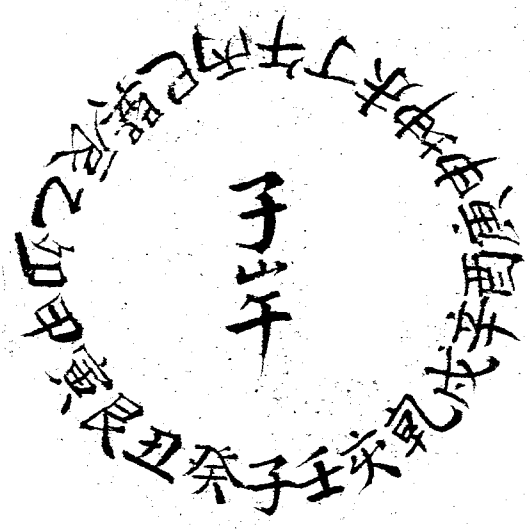 子山午
子癸丑艮寅甲卯乙辰巽巳丙午丁未坤申寅酉辛戌乾亥壬